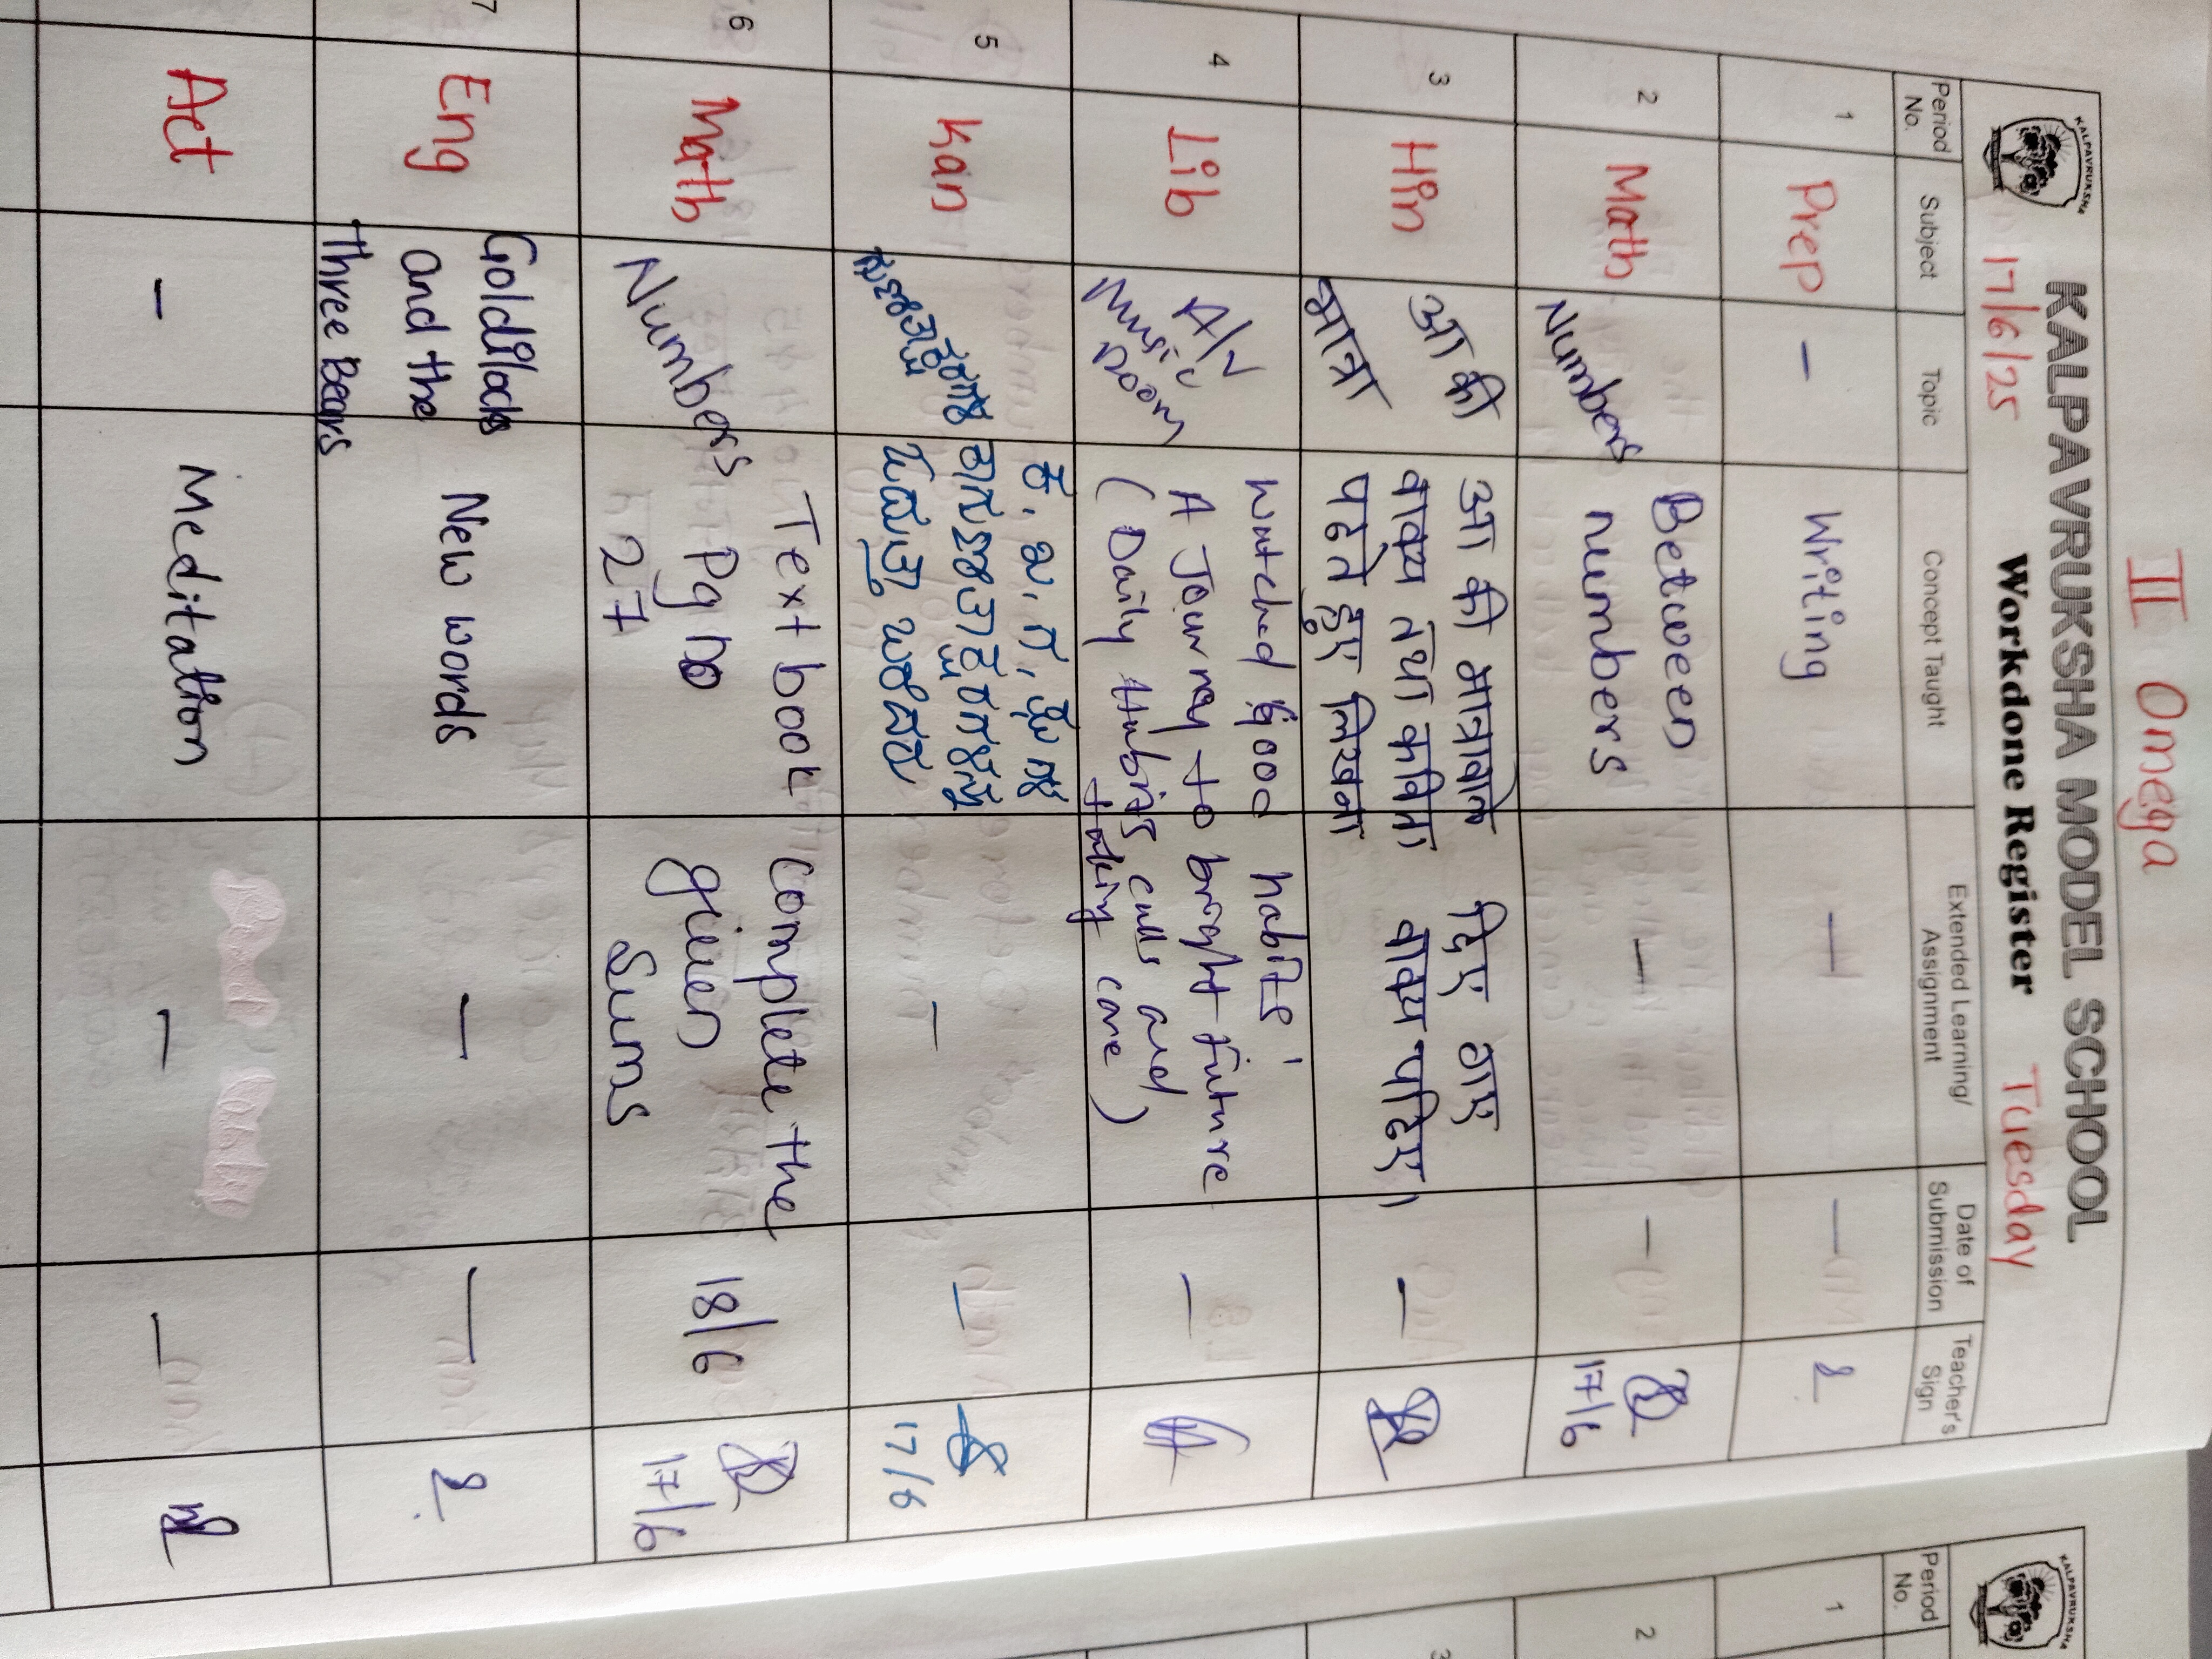 II Omega
KALPAVRUKSHA
KALPAVRUKSHA MODEL SCHOOL
17/6/25 Workdone Register Tuesday
Period No. Subject Topic Concept Taught Extended Learning/ Assignment Date of Submission Teacher's Sign
1 Prep - Writing — —
2 Math Numbers Between — — 17/6
numbers
3 Hin आ की आ की मात्रावाले दिए गए —
मात्रा वाक्य तथा कविता वाक्य पढिए।
पढते हुए लिखना
4 Lib A/V Watched 'good habits' —
Music A Journey to bright future
Room (Daily Hubits culls and
taking care)
5 Kan ಕ, ಖ, ಗ, — — 17/6
6 Math Numbers Text book complete the 18/6 17/6
Pg no given
27 Sums
7 Eng Goldilocks New words — —
and the
Three Bears
Act - Meditation — —
KALPAVRUKSHA
Period No.
1
2
3